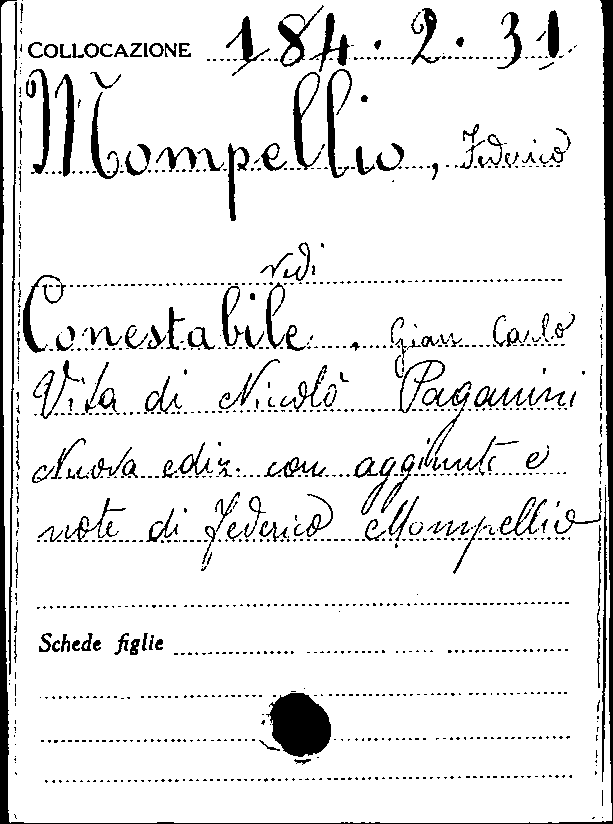 COLLOCAZIONE 184.2.31
Mompellio, Federico
vedi
Conestabile, Gian Carlo
Vita di Nicolò Paganini
Nuova ediz. con aggiunte e
note di Federico Mompellio
Schede figlie